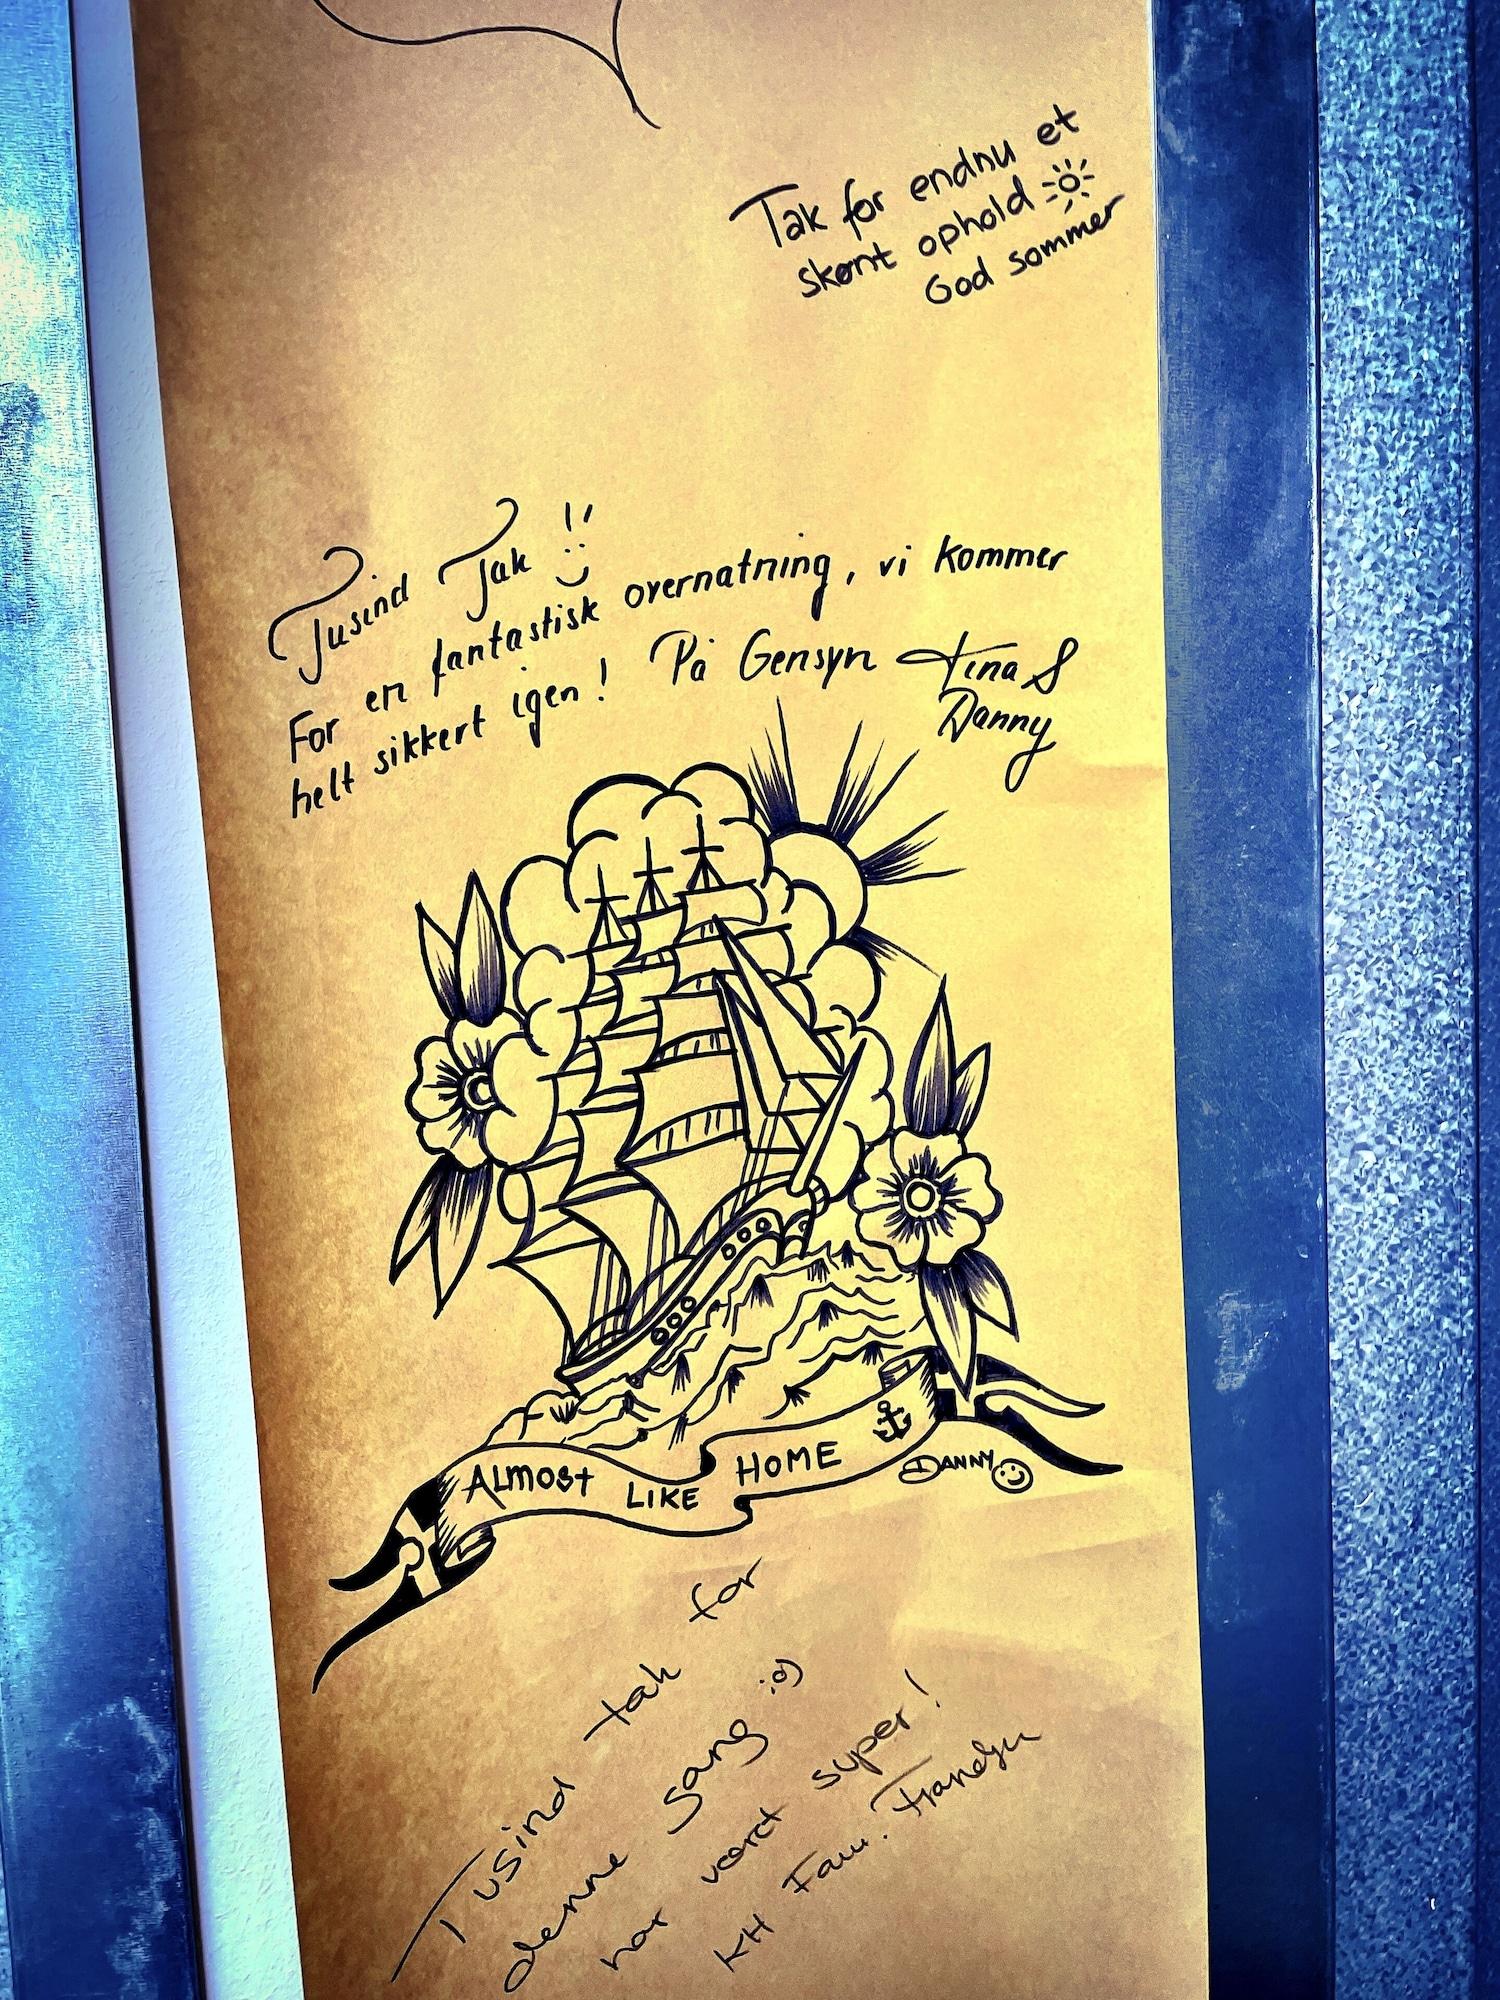 Tak for endnu et
skønt ophold
God sommer
Tusind Tak !!
For en fantastisk overnatning, vi kommer
helt sikkert igen! På Gensyn Tina &
Danny
ALMOST LIKE HOME
DANNY
Tusind tak for
denne gang ;o)
har været super!
KH Fam. Frandsen